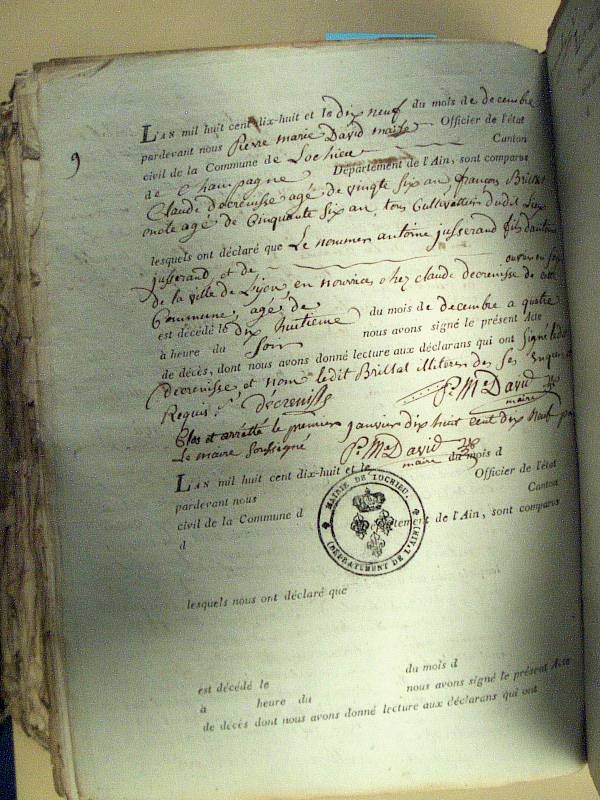 9
LAN mil huit cent dix-huit et le dix neuf du mois de decembre
pardevant nous pierre marie David maire Officier de l'état
civil de la Commune de Lochieu Canton
de Champagne Département de l'Ain, sont comparus
Claude decrenisse agé de vingte six an françois Brillat
oncle agé de Cinquante six an, tous Cultivateur dudit Lieu
lesquels ont déclaré que Le nommer antoine jusserand fils d'antoine
jusserand, et de
de la ville de Lijon en nourrice chez claude decrenisse de cette
Commune, agé de
est décédé le dix huitieme du mois de decembre a quatre
à heure du Soir nous avons signé le présent Acte
de décès, dont nous avons donné lecture aux déclarans qui ont Signé ledit
decrenisse, et nom ledit Brillat illiteré de se
Requis décrenisse P. Me David
maire
Clos et arretté le premier janvier dix huit cent dix neuf par
Le maire Soussigné P. Me David
maire
LAN mil huit cent dix-huit et le du mois d
pardevant nous Officier de l'état
civil de la Commune d Canton
d Département de l'Ain, sont comparus
MAIRIE DE LOCHIEU.
(DÉPARTEMENT DE L'AIN)
lesquels nous ont déclaré que
est décédé le du mois d
à heure du nous avons signé le présent Acte
de décès dont nous avons donné lecture aux déclarans qui ont